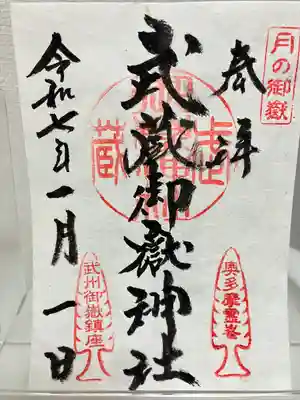 月の御嶽
奉拝
武蔵御嶽神社
奥多摩霊峰
武州御嶽鎮座
令和七年一月一日